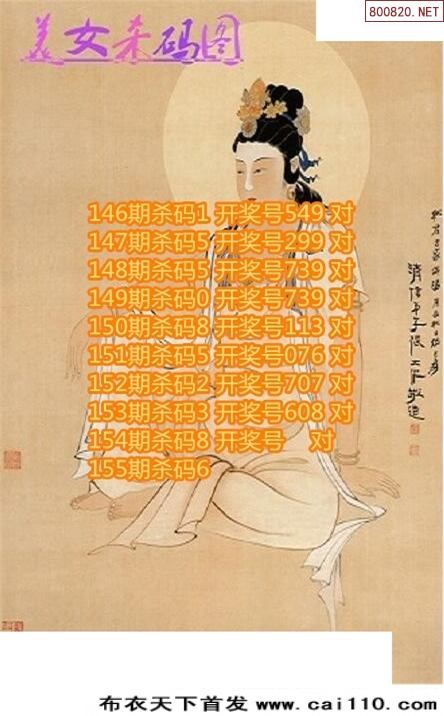 800820.NET
美女杀码图
146期杀码1 开奖号549 对
147期杀码5 开奖号299 对
148期杀码5 开奖号739 对
149期杀码0 开奖号739 对
150期杀码8 开奖号113 对
151期杀码5 开奖号076 对
152期杀码2 开奖号707 对
153期杀码3 开奖号608 对
154期杀码8 开奖号 对
155期杀码6
布衣天下首发 www.cai110.com